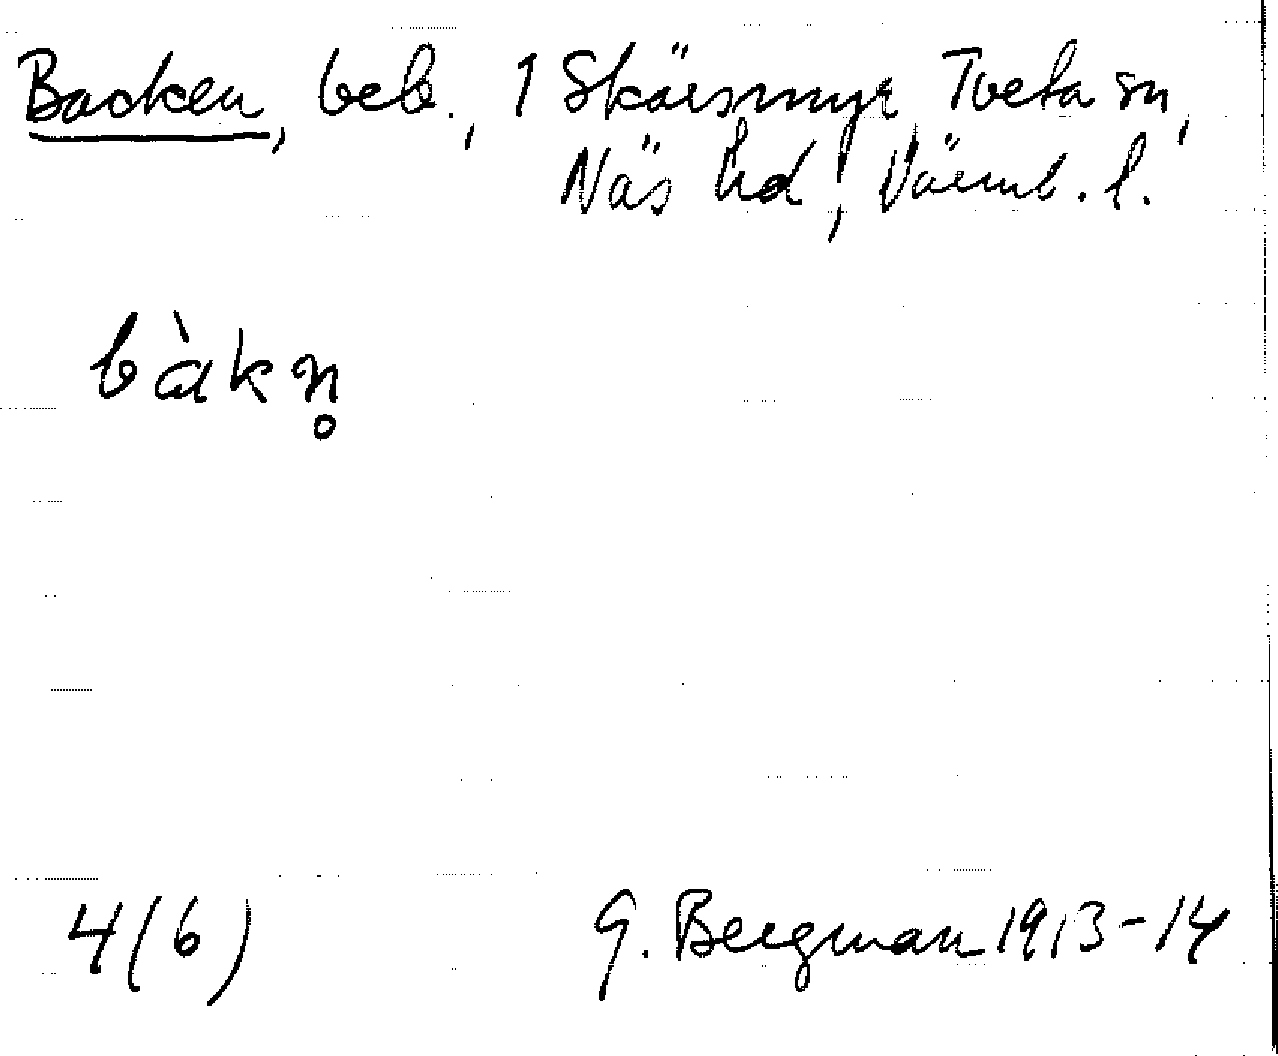 Backen, beb., 1 Skärsmyr, Tveta sn,
Näs hd, Värml. l.
bàkn̥
4(6) G. Bergman 1913-14